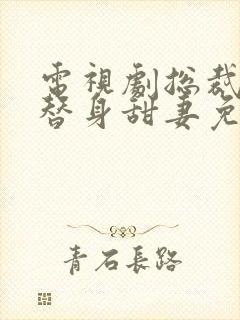 電視劇总裁
替身甜妻免
青石長路